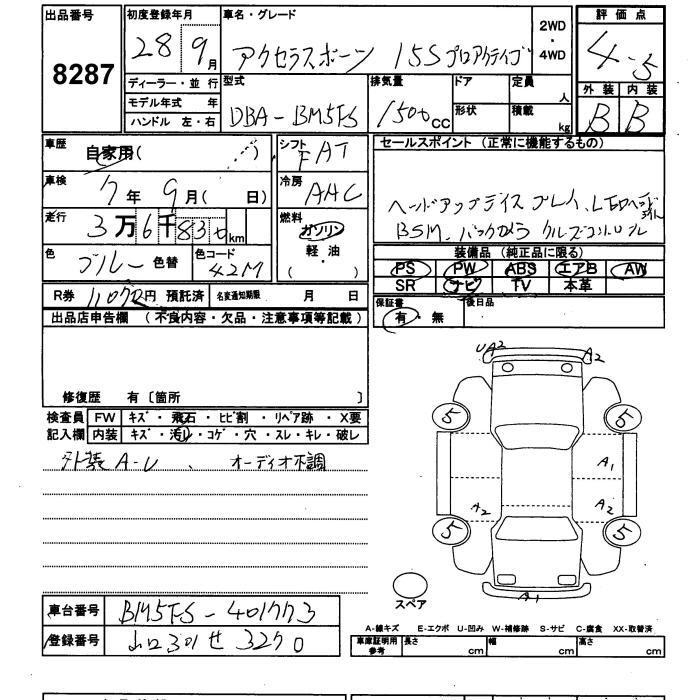 出品番号 初度登録年月 車名・グレード 2WD ・ 4WD 評価点
8287 28 9月 アクセラスポーツ 15S プロアクティブ 4-5
ディーラー・並行 型式 排気量 ドア 定員 人 外装 内装
モデル年式 年 DBA-BM5FS 1500cc 形状 積載 kg B B
ハンドル 左・右
車歴 自家用( ) シフト FAT セールスポイント (正常に機能するもの)
車検 7年 9月( 日) 冷房 AAC ヘッドアップディスプレイ、LEDヘッドライト
走行 3万6千830km 燃料 ガソリン 軽・油 ( ) BSM、バックカメラ クルーズコントロール
色 ブルー 色替 色コード 42M 装備品 (純正品に限る)
PS PW ABS エアB AW
SR ナビ TV 本革
R券 11070円 預託済 名変通知期限 月 日 保証書 有・無 後日品
出品店申告欄 (不良内容・欠品・注意事項等記載)
修復歴 有〔箇所 〕
検査員 FW キズ・飛石・ヒビ割・リペア跡・X要
記入欄 内装 キズ・汚れ・コゲ・穴・スレ・キレ・破レ
外装 A-U 、 オーディオ不調
UA2 A2
5 5
A1
A2 A2
5 5
スペア A1
車台番号 BM5FS-401773
登録番号 山口301せ3270
A-線キズ E-エクボ U-凹み W-補修跡 S-サビ C-腐食 XX-取替済
車庫証明用参考 長さ cm 幅 cm 高さ cm